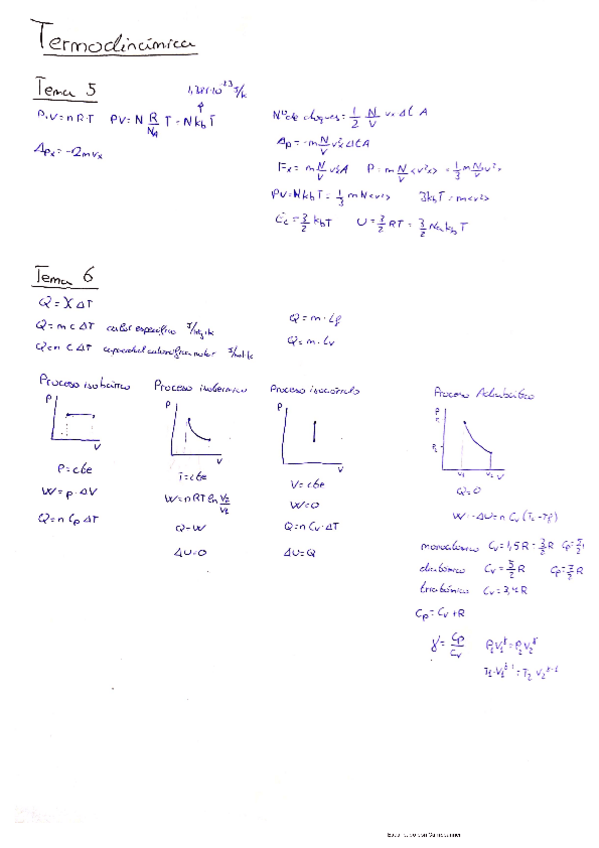 Termodinámica
Tema 5
1,381·10⁻²³ J/k
P·V=nR·T PV=N R/N_A T=Nk_bT
Δp_x=-2mv_x
Nº de choques=1/2 N/V v_xΔt A
Δp=-mN/V v_x²ΔtA
F_x=mN/V v_x²A P=mN/V<v²x>=1/3 mN/V v²>
PV=Nk_bT=1/3 mN<v²> 3k_bT=m<v²>
E_c=3/2 k_bT U=3/2 RT=3/2 N_A k_bT
Tema 6
Q=XΔT
Q=mcΔT calor específico J/kg·k
Q=nCΔT capacidad calorífica molar J/mol·k
Q=m·L_f
Q=m·L_v
Proceso isobárico
P
V
P=cte
W=p·ΔV
Q=nC_pΔT
Proceso isotérmico
P
V
T=cte
W=nRT ln V₂/V₁
Q=W
ΔU=0
Proceso isocórico
P
V
V=cte
W=0
Q=nC_v·ΔT
ΔU=Q
Proceso Adiabático
P
V
Q=0
W=-ΔU=nC_v(T₀-T_f)
monoatómico C_v=1,5R=3/2R
diatómico C_v=5/2R C_p=7/2R
triatómico C_v=3,4R
C_p=C_v+R
γ=C_p/C_v P₁V₁^γ=P₂V₂^γ
T₁·V₁^γ-1=T₂V₂^γ-1